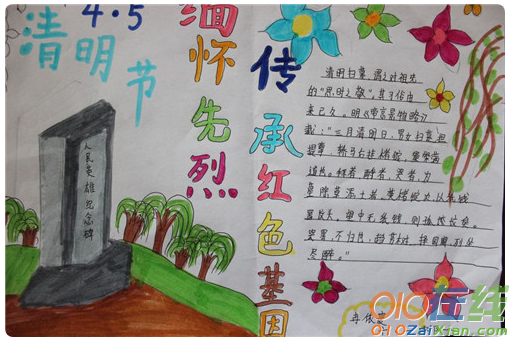 4·5
清明节
缅怀先烈
传承红色基因
人民英雄纪念碑
清明扫墓,谓之对祖先
的“思时之敬”,其习俗由
来已久。明《帝京景物略》
载:“三月清明日,男女扫墓,担
提尊榼,轿马后挂楮锭,粲粲然满
道也。拜者、酹者、哭者、为
墓除草添土者,焚楮锭次,以纸钱
置坟头。望中无纸钱,则孤坟矣。
哭罢,不归也,趋芳树,择园圃,列坐
尽醉。”
010在线
010ZaiXian.com